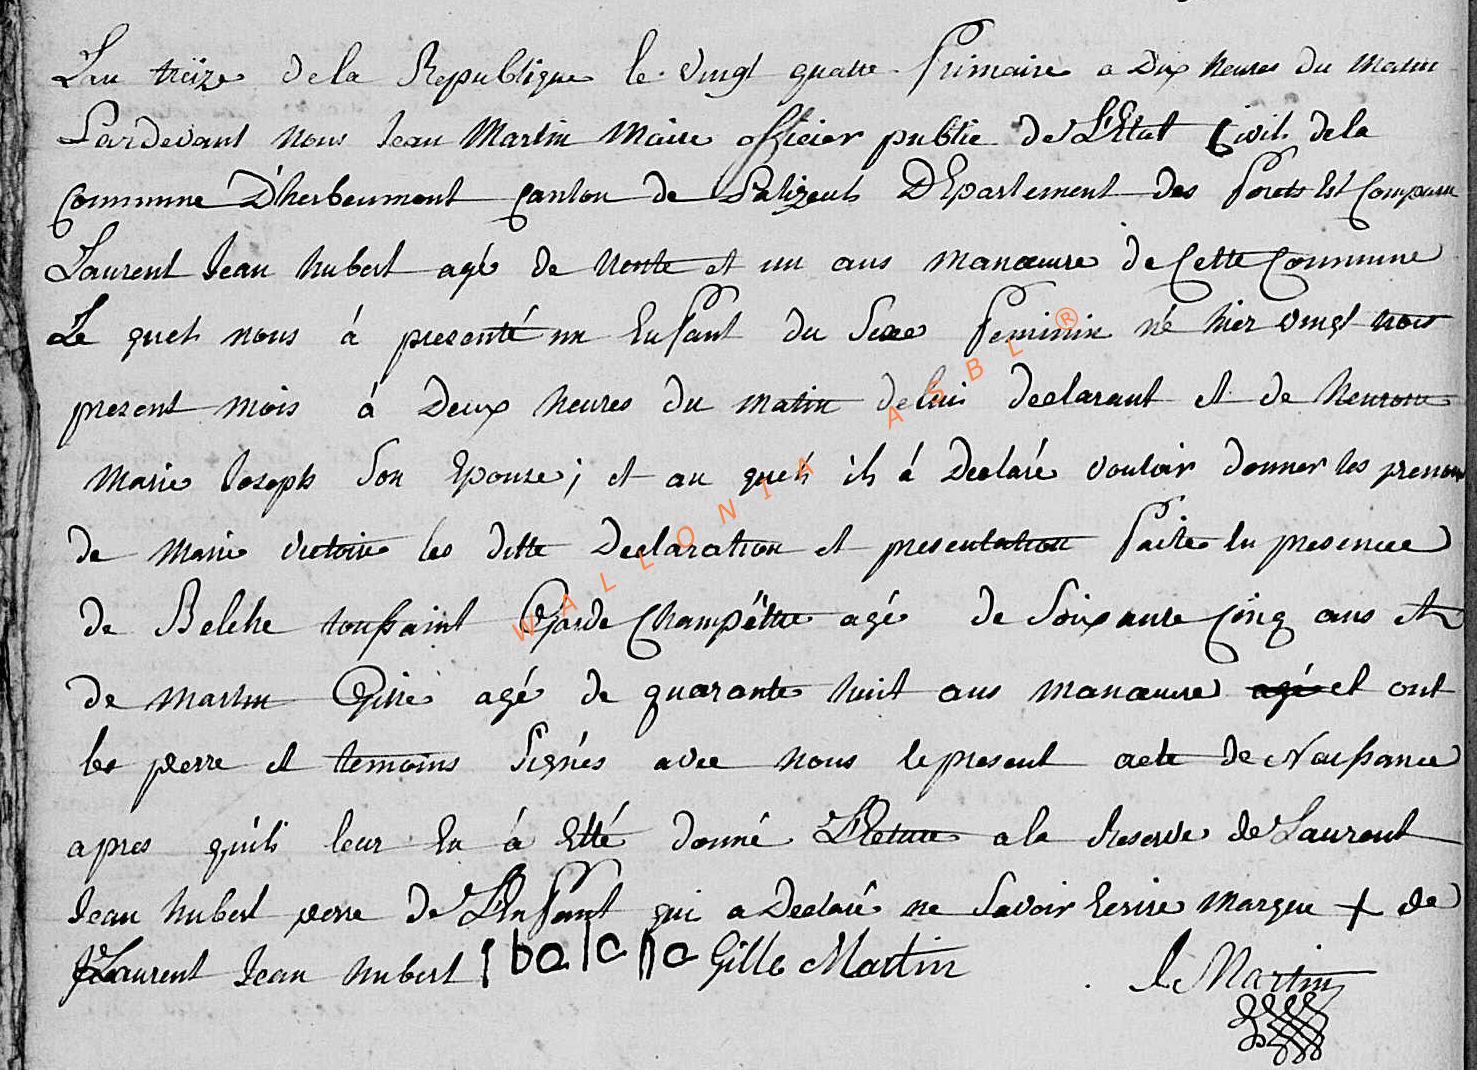 L'an treize de la Republique le vingt quatre frimaire a Dix heures du matin
Pardevant nous Jean Martin Maire officier public de L'Etat Civil de la
Commune D'herbeumont Canton de Palizeuls DEpartement des forets Est Comparu
Laurent Jean hubert agé de trente et un ans manœuvre de Cette Commune
Le quel nous à presenté un Enfant du Sexe feminin né hier vingt trois
present mois à Deux heures du matin de lui declarant et de
Marie Joseph Son Epouse; et au quel il à Declaré vouloir donner les prenoms
de Marie victoire les ditte Declaration et presentation faite En presence
de Belche toussaint Garde Champêtre agé de Soixante Cinq ans Et
de Martin Gille agé de quarante huit ans manœuvre agé et ont
les perre et temoins Signés avec nous le present acte de Naissance
apres qu'il leur En à Etté donné LEcture a la Reserve de Laurent
Jean hubert perre de L'Enfant qui a Declaré ne Savoir Ecrire Marque + de
Laurent Jean hubert Gille Martin J Martin
WALLONIA ASBL ®